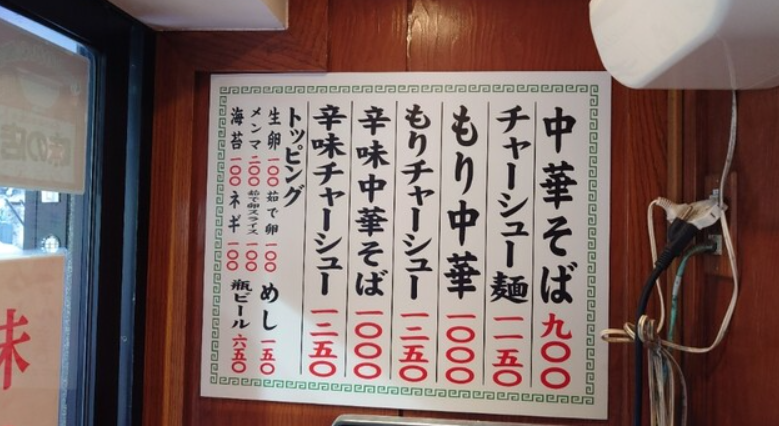 中華そば 九〇〇
チャーシュー麺 一一五〇
もり中華 一〇〇〇
もりチャーシュー 一二五〇
辛味中華そば 一〇〇〇
辛味チャーシュー 一二五〇
トッピング
生卵 一〇〇 茹で卵 一〇〇 めし 一五〇
メンマ 二〇〇 茹で卵スライス 一〇〇 瓶ビール 六五〇
海苔 一〇〇 ネギ 一〇〇
味の店
味